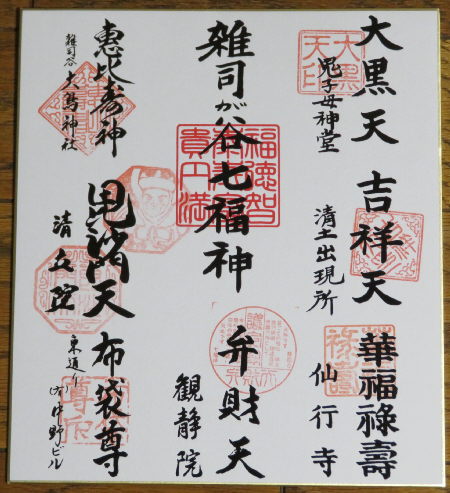 大黒天
鬼子母神堂
吉祥天
清土出現所
華福祿壽
仙行寺
雑司が谷七福神
弁財天
観静院
恵比寿神
雑司谷
大鳥神社
毘沙門天
清立院
布袋尊
東通り
中野ビル
大黒
天印
福徳智
貴円満